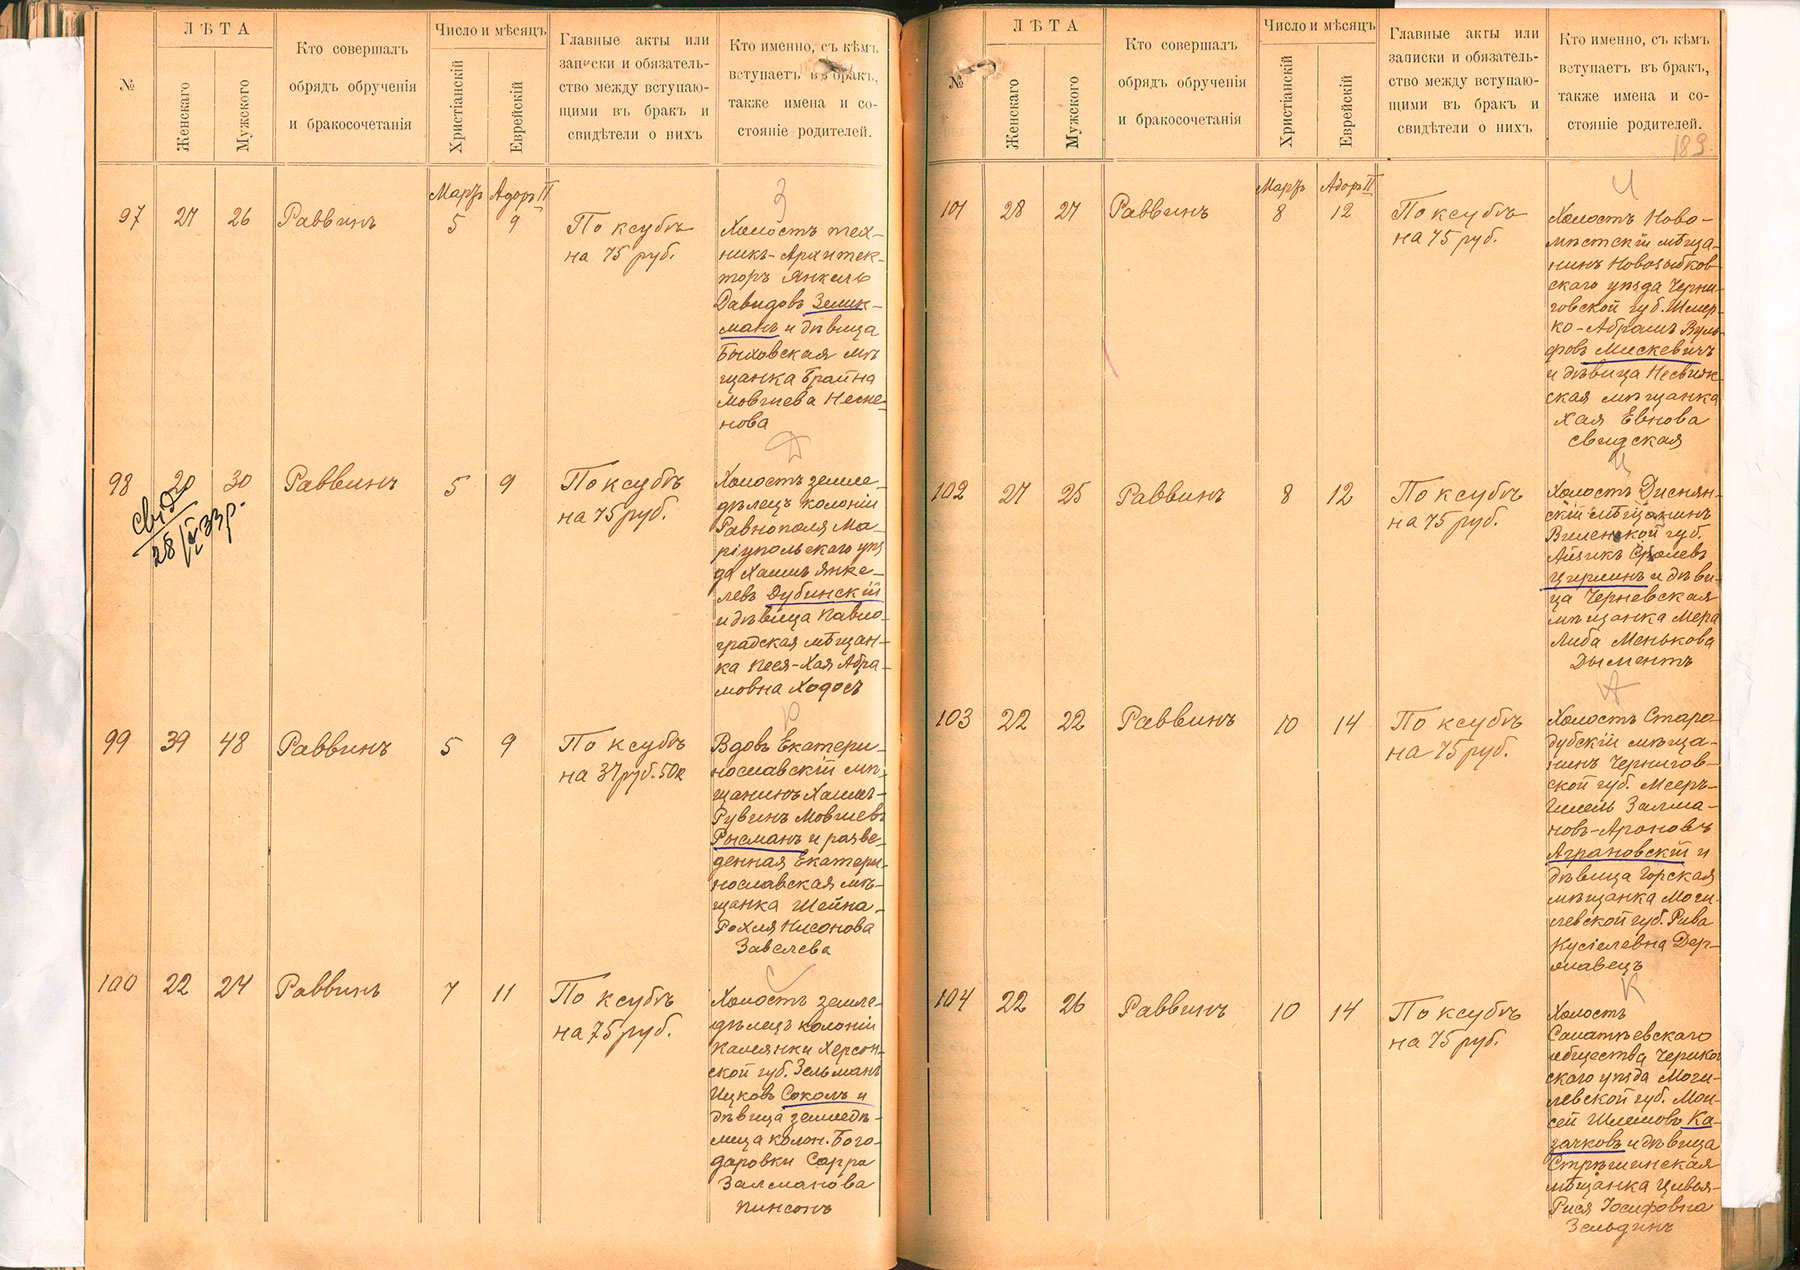 №
ЛѢТА
Женскаго
Мужского
Кто совершалъ
обрядъ обрученія
и бракосочетанія
Число и мѣсяцъ
Христіанскій
Еврейскій
Главные акты или
записки и обязатель-
ство между вступаю-
щими въ бракъ и
свидѣтели о нихъ
Кто именно, съ кѣмъ
вступаетъ въ бракъ,
также имена и со-
стояніе родителей.
Мартъ Адоръ II
З
97 27 26 Раввинъ 5 9
По ксубѣ
на 75 руб.
Холостъ тех-
никъ-Архитек-
торъ Янкель
Давидовъ Зелик-
манъ и дѣвица
Быховская мѣ
щанка Брайна
Мовшева Несне-
нова
Д
98 20 30 Раввинъ 5 9
По ксубѣ
на 75 руб.
Холостъ земле-
дѣлецъ колоніи
Равнополя Ма-
ріупольскаго уѣз
да Хаимъ Янке-
левъ Дубинскій
и дѣвица Павло-
градская мѣщан-
ка Песя-Хая Абра-
мовна Ходосъ
Р
99 39 48 Раввинъ 5 9
По ксубѣ
на 37 руб. 50 к
Вдовъ Екатери-
нославскій мѣ-
щанинъ Хаимъ-
Рувинъ Мовшевъ
Рысманъ и разве-
денная Екатери-
нославская мѣ-
щанка Шейна-
Рохля Нисонова
Завелева
С
100 22 24 Раввинъ 7 11
По ксубѣ
на 75 руб.
Холостъ земле-
дѣлецъ колоніи
Камянки Херсон-
ской губ. Зельманъ
Ицковъ Соколъ и
дѣвица земледѣ-
лица колон. Бого-
даровки Сарра
Залманова
Пинсонъ
№
ЛѢТА
Женскаго
Мужского
Кто совершалъ
обрядъ обрученія
и бракосочетанія
Число и мѣсяцъ
Христіанскій
Еврейскій
Главные акты или
записки и обязатель-
ство между вступаю-
щими въ бракъ и
свидѣтели о нихъ
Кто именно, съ кѣмъ
вступаетъ въ бракъ,
также имена и со-
стояніе родителей.
189
Мартъ Адоръ II
101 28 27 Раввинъ 8 12
По ксубѣ
на 75 руб.
Холостъ Ново-
мѣстскій мѣща-
нинъ Новозыбков-
скаго уѣзда Черни-
говской губ. Шмер-
ко-Абрамъ Вуль-
фовъ Мискевичъ
и дѣвица Несвиж-
ская мѣщанка
Хая Евнова
Свидская
Ц
102 27 25 Раввинъ 8 12
По ксубѣ
на 75 руб.
Холостъ Диснян-
скій мѣщанинъ
Виленской губ.
Айзикъ Сролевъ
Цирлинъ и дѣви-
ца Черневская
мѣщанка Мера
Либа Менькова
Дыментъ
А
103 22 22 Раввинъ 10 14
По ксубѣ
на 75 руб.
Холостъ Старо-
дубскій мѣща-
нинъ Чернигов-
ской губ. Мееръ-
Шмель Залма-
новъ-Ароновъ
Аграновскій и
дѣвица Горская
мѣщанка Моги-
левской губ. Рива
Кусіелевна Дер-
жавецъ
К
104 22 26 Раввинъ 10 14
По ксубѣ
на 75 руб.
Холостъ
общества Черико
скаго уѣзда Моги-
левской губ. Мои-
сей Шлемовъ Ка-
зачковъ и дѣвица
Стрѣшинская
мѣщанка Цивья-
Рися Іосифовна
Зельдинъ